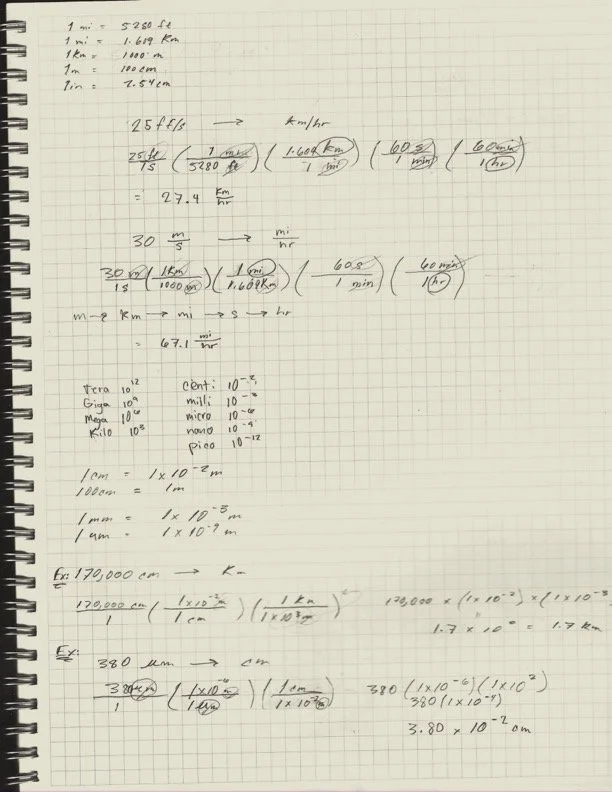 1 mi = 5280 ft
1 mi = 1.609 Km
1 Km = 1000 m
1m = 100cm
1in = 2.54cm
25 ft/s → km/hr
25 ft/1s (1 mi/5280 ft) (1.609 Km/1 mi) (60 s/1 min) (60 min/1 hr)
= 27.4 Km/hr
30 m/s → mi/hr
30 m/1s (1Km/1000 m) (1 mi/1.609Km) (60 s/1 min) (60 min/1 hr)
m → Km → mi → s → hr
= 67.1 mi/hr
Tera 10^12 centi 10^-2
Giga 10^9 milli 10^-3
Mega 10^6 micro 10^-6
Kilo 10^3 nano 10^-9
pico 10^-12
1cm = 1x10^-2 m
100cm = 1m
1mm = 1x10^-3 m
1 = 1x10^-9 m
Ex: 170,000 cm → Km
170,000 cm/1 (1x10^-2 m/1 cm) (1 Km/1x10^3 m) 170,000 x (1x10^-2) x (1x10^-3
1.7 x 10^0 = 1.7 Km
Ex:
380 μm → cm
380 μm/1 (1x10^-6 m/1 μm) (1cm/1x10^-2 m) 380 (1x10^-6)(1x10^2)
380 (1x10^-4)
3.80 x 10^-2 cm